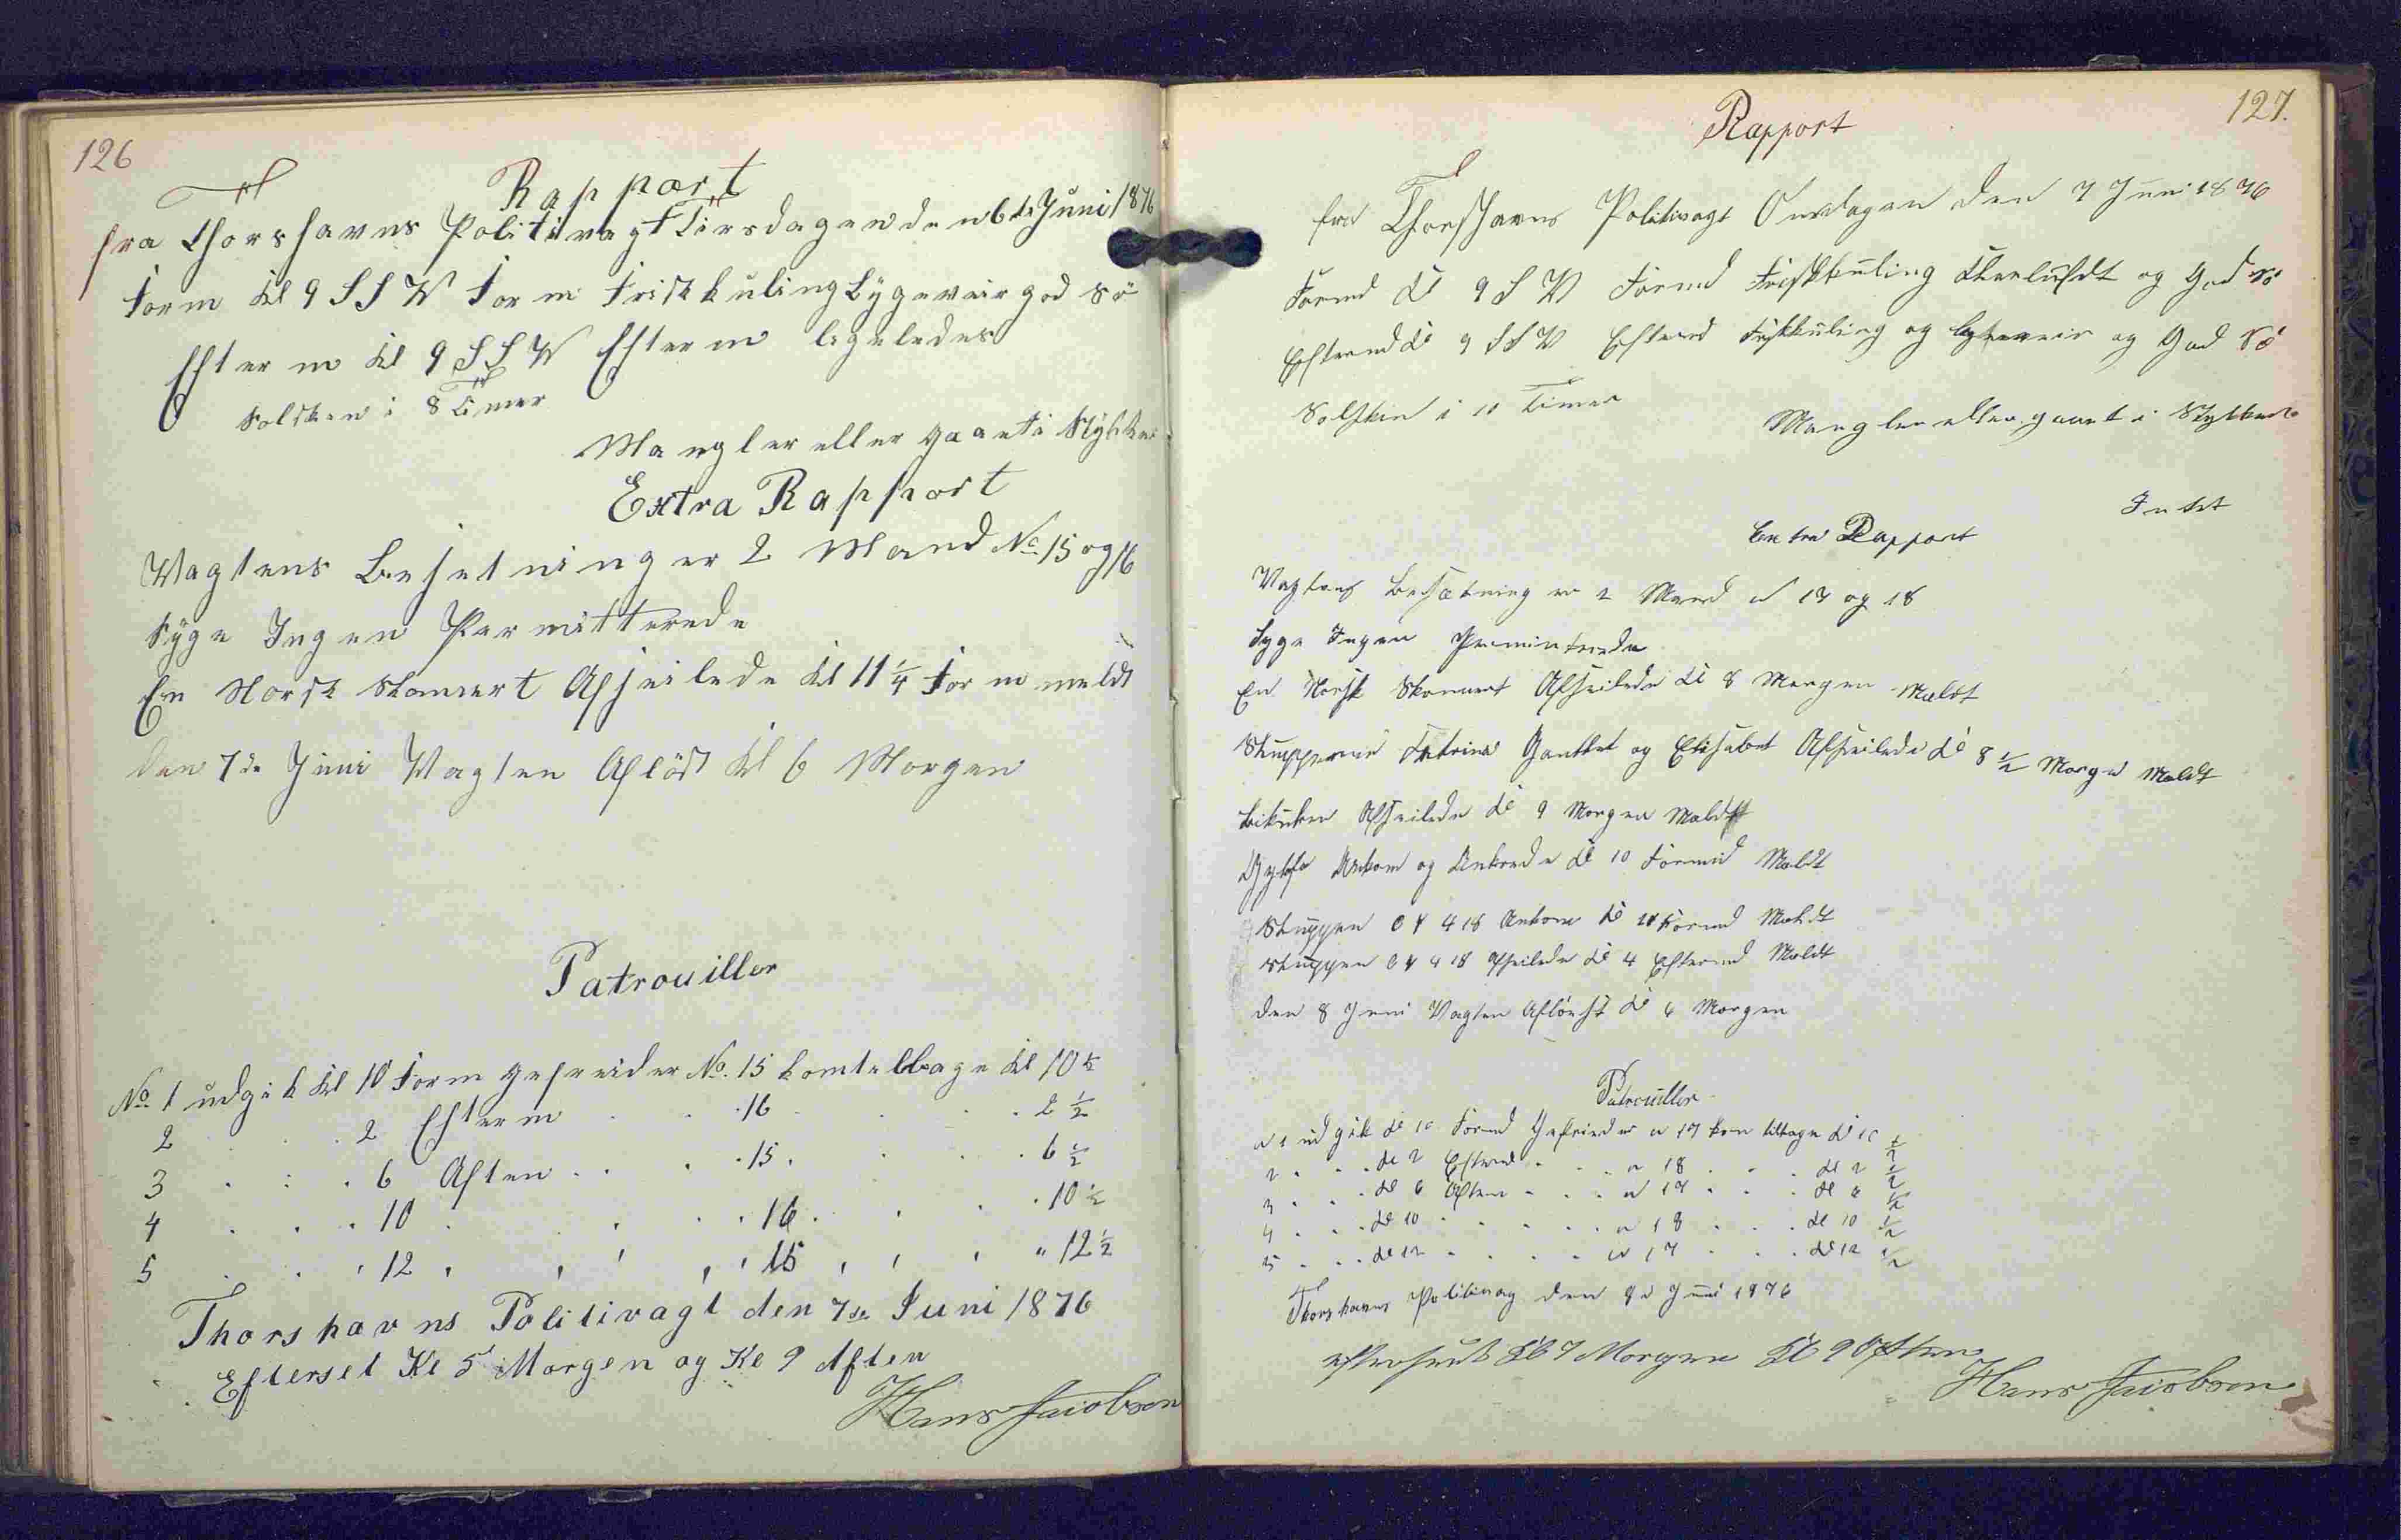 126
Rapport
fra Thorshavns Politivagt Tirsdagen den 6te Juni 1876
Form Kl 9 SSW Form Friskkuling Bygeveir god Sö
Efterm Kl 9 SSW Efterm ligeledes
Solsken i 8 Timer
Mangler eller gaaet i Stykker
Extra Rapport
Vagtens Besetning er 2 Mand No 15 og 16
Syge Ingen Permitterede
En Norsk Skonnert Afseilede Kl 11 1/4 Form meldt
Den 7de Juni Vagten Aflöst Kl 6 Morgen
Patrouiller
No 1 udgik Kl 10 Form Gefreider No. 15 kom tilbage Kl 10 ½
2 . . . 2 Efterm . . . 16 . . . 2 ½
3 . . . 6 Aften . . . 15 . . . 6 ½
4 . . . 10 . . . 16 . . . 10 ½
5 . . . 12 . . . 15 . . . " 12 ½
Thorshavns Politivagt den 7de Juni 1876
Efterset Kl 5 Morgen og Kl 9 Aften
Hans Jacobsen
127.
Rapport
fra Thorshavns Politivagt Onsdagen den 7 Juni 1876
Formd Kl 9 S W Formd Friskkuling og God Sö
Eftermd Kl 9 SSW Eftermd Friskkuling og Bygeveir og God Sö
Solskin i 10 Timer
Mangler eller gaaet i Stykker
Intet
Extra Rapport
Vagtens Besætning er 2 Mand N 17 og 18
Syge Ingen Perminterede
En Norsk Skonnert Afseilede Kl 8 Morgen Meldt
Slupperne Katrine og Elisabet Afseilede Kl 8 ½ Morgen Meldt
Afseilede Kl 9 Morgen Meldt
Ankom og Ankrede Kl 10 Formd Meldt
Sluppen 418 Ankom Kl Formd Meldt
Sluppen 418 Afseilede Kl 4 Eftermd Meldt
Den 8 Juni Vagten Aflöst Kl 6 Morgen
Patrouiller
N 1 udgik Kl 10 Formd Gefrieder N 17 kom tilbage Kl 10 ½
2 . . . Kl 2 Eftermd . . . N 18 . . . Kl 2 ½
3 . . . Kl 6 Aften . . . N 17 . . . Kl 6 ½
4 . . . Kl 10 . . . N 18 . . . Kl 10 ½
5 . . . Kl 12 . . . N 17 . . . Kl 12 ½
Thorshavns Politivag den 8d Juni 1876
Efterseet Kl 7 Morgen Kl 9 Aften
Hans Jacobsen